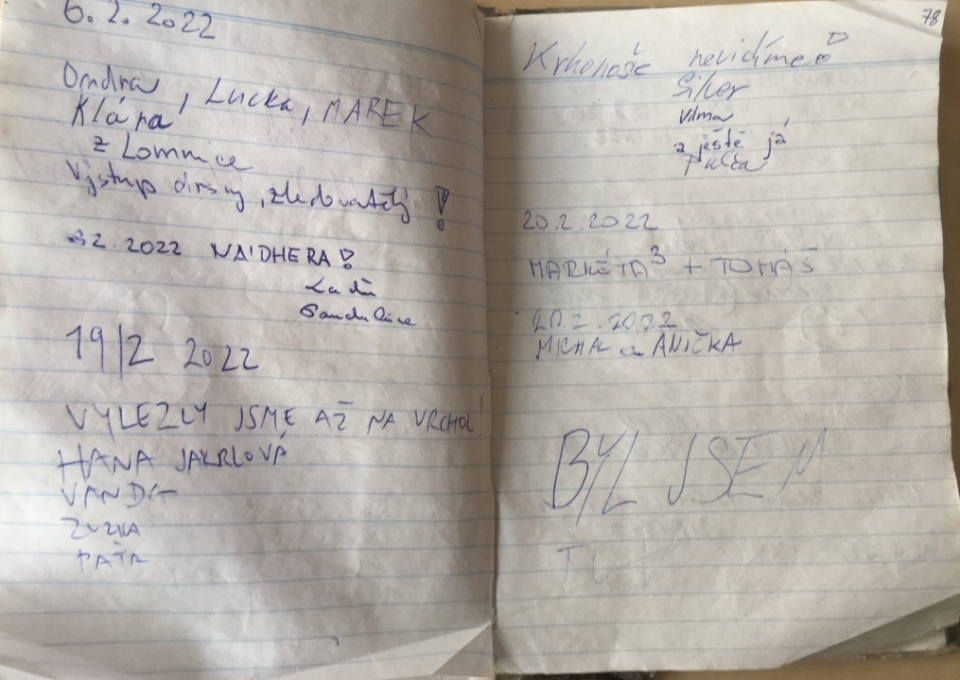 6.2.2022
Ondra, Lucka, MAREK
Klára
z Lomnice
Výstup drsný, zledovatělý!
2.2022 NÁDHERA!
19/2 2022
VYLEZLY JSME AŽ NA VRCHOL!
HANA JAKRLOVÁ
VANDA
ZUZKA
PAŤA
78
Krkonoše nevidíme!
Vilma
a ještě já
20.2.2022
MARKÉTA³ + TOMÁŠ
20.2.2022
MICHAL a ANIČKA
BYL JSEM
TU!